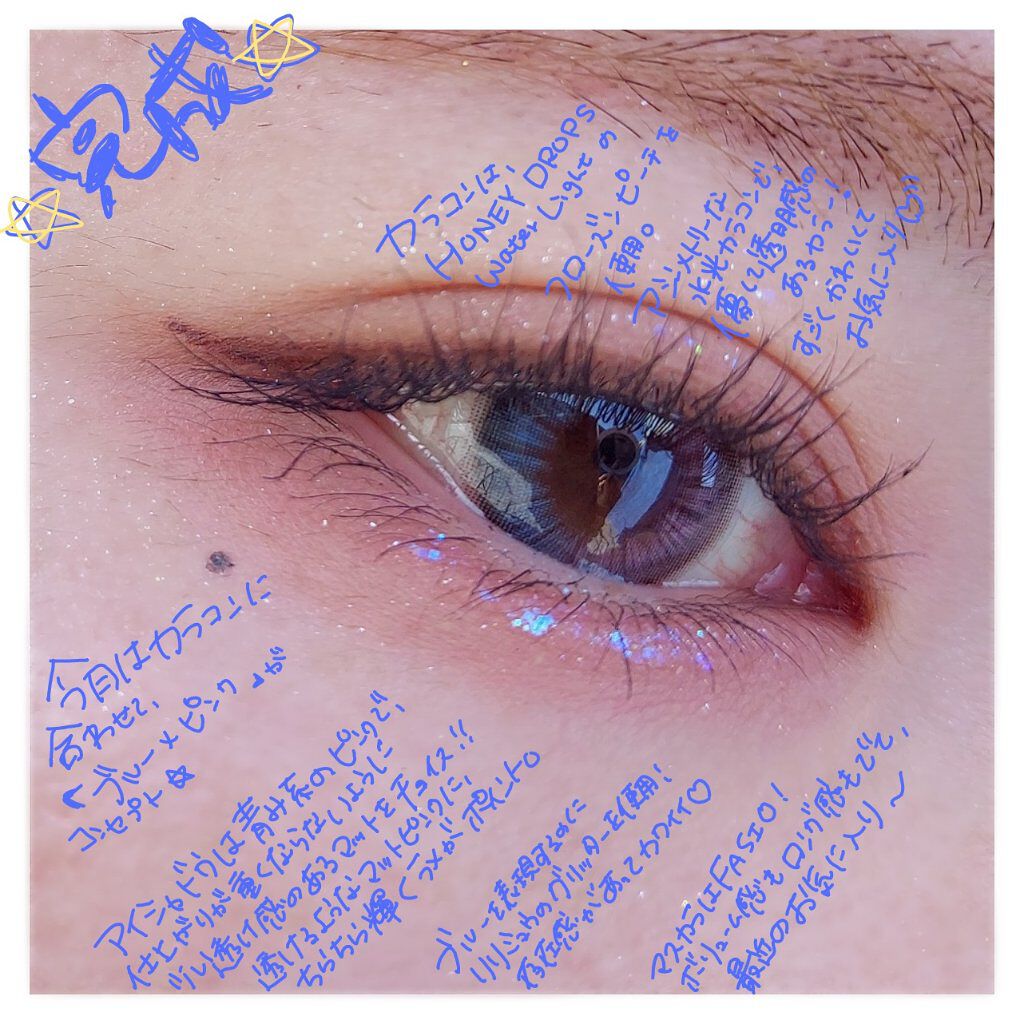 完成
カラコンは、
HONEY DROPS
Water Lightの
フローズンピーチを
使用。
アシンメトリーな
水光カラコンで
儚い透明感の
あるカラー!
すごくかわいくて
お気に入り♡
今日はカラコンに
合わせて、
"ブルー×ピンク"が
コンセプト☆
アイシャドウは青み系のピンクで、
仕上がりが重くならないように
透け感のあるマットをチョイス!!
透けるようなマットピンクに、
ちらちら輝くラメがポイント。
ブルーを表現するのに
リリミュウのグリッターを使用!
存在感があってカワイイ♡
マスカラはFASIO!
ボリューム感もロング感もでて、
最近のお気に入り〜